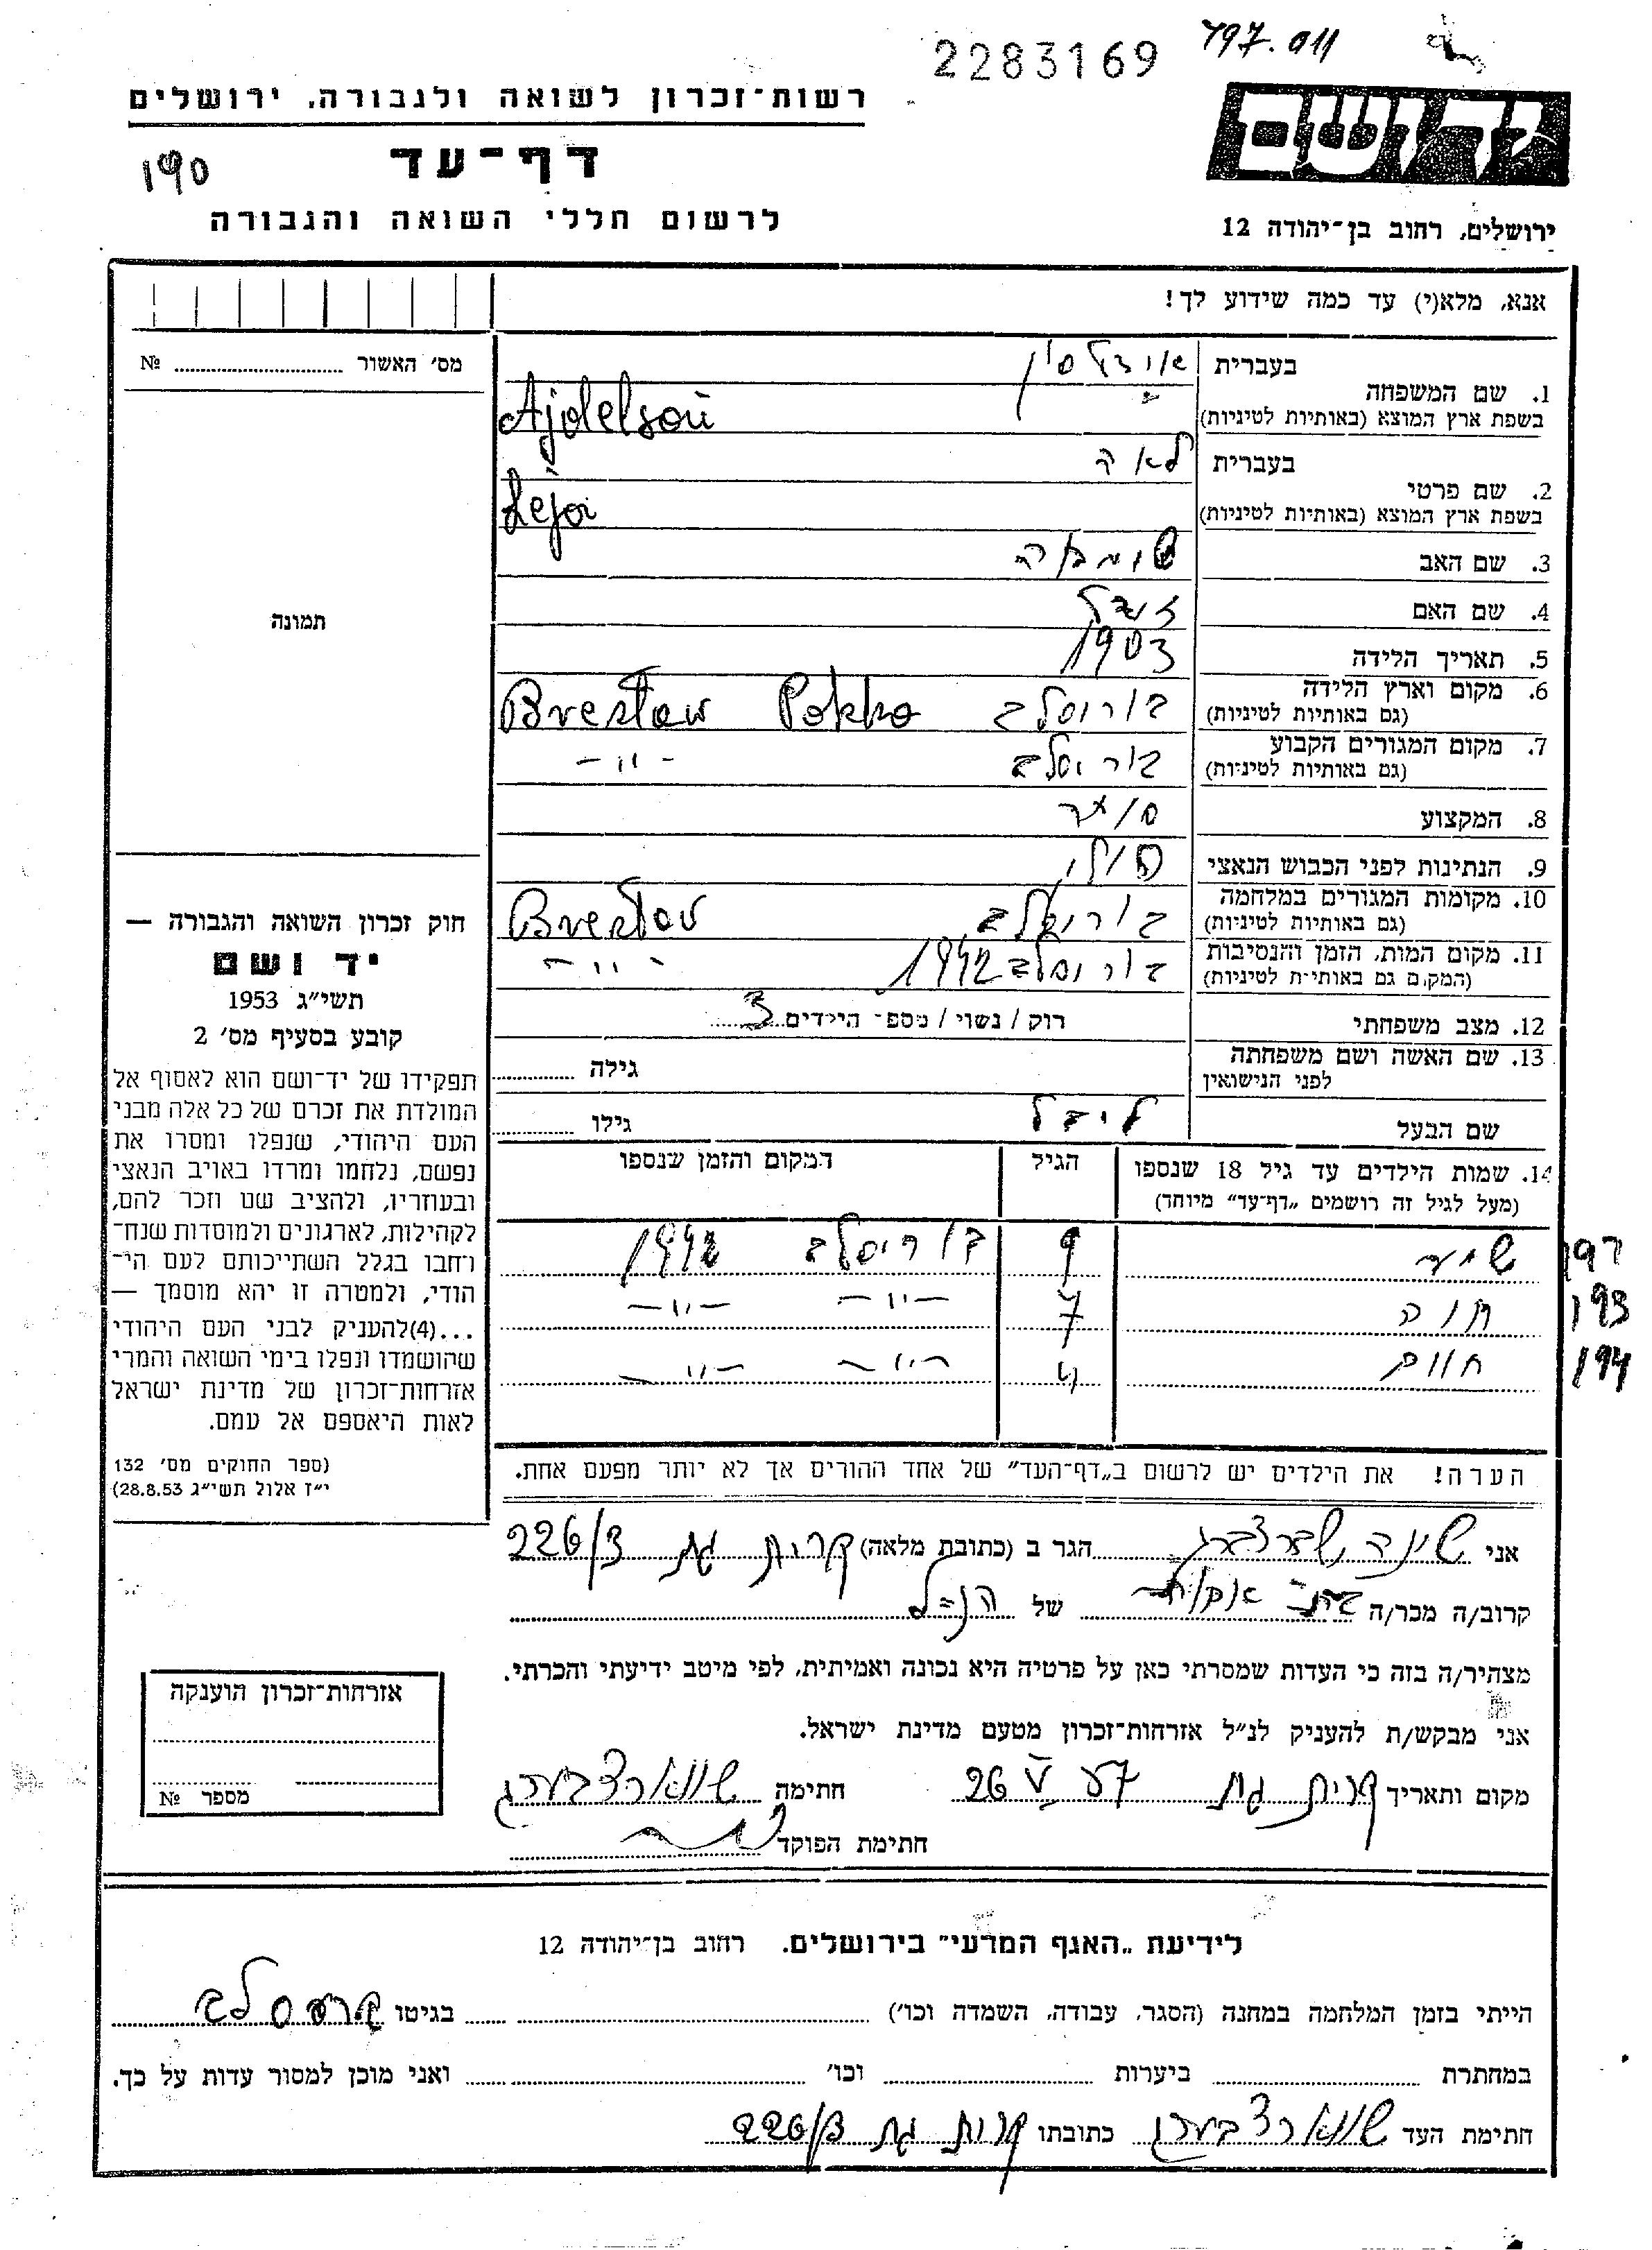 2283169
797.011
רשות־זכרון לשואה ולגבורה, ירושלים
יד ושם
דף־עד
190
לרשום חללי השואה והגבורה
ירושלים, רחוב בן־יהודה 12
אנא, מלא(י) עד כמה שידוע לך!
מס׳ האשור № 
1. שם המשפחה
בעברית
בשפת ארץ המוצא (באותיות לטיניות)
Ajdelson
2. שם פרטי
בעברית לאה
בשפת ארץ המוצא (באותיות לטיניות)
Leja
3. שם האב
4. שם האם
5. תאריך הלידה 1903
6. מקום וארץ הלידה
(גם באותיות לטיניות)
7. מקום המגורים הקבוע
(גם באותיות לטיניות) -"-
8. המקצוע
9. הנתינות לפני הכבוש הנאצי פולני
10. מקומות המגורים במלחמה
(גם באותיות לטיניות)
11. מקום המות, הזמן והנסיבות 1942 -"-
(המקום גם באותיות לטיניות)
12. מצב משפחתי רוק / נשוי / מספר הילדים 3
13. שם האשה ושם משפחתה גילה
לפני הנישואין
שם הבעל לייבל גילו
14. שמות הילדים עד גיל 18 שנספו הגיל המקום והזמן שנספו
(מעל לגיל זה רושמים „דף־עד" מיוחד)
9 1942
193 חוה 7 -"- -"-
194 חיים 4 -"- -"-
הערה! את הילדים יש לרשום ב„דף־העד" של אחד ההורים אך לא יותר מפעם אחת.
תמונה
חוק זכרון השואה והגבורה —
יד ושם
תשי״ג 1953
קובע בסעיף מס׳ 2
תפקידו של יד־ושם הוא לאסוף אל
המולדת את זכרם של כל אלה מבני
העם היהודי, שנפלו ומסרו את
נפשם, נלחמו ומרדו באויב הנאצי
ובעוזריו, ולהציב שם וזכר להם,
לקהילות, לארגונים ולמוסדות שנח־
רחבו בגלל השתייכותם לעם הי־
הודי, ולמטרה זו יהא מוסמך —
...(4)להעניק לבני העם היהודי
שהושמדו ונפלו בימי השואה והמרי
אזרחות־זכרון של מדינת ישראל
לאות היאספם אל עמם.
(ספר החוקים מס׳ 132
י״ז אלול תשי״ג 28.8.53)
אני הגר ב (כתובת מלאה) קרית גת 226/3
קרוב/ה מכר/ה של הנ״ל
מצהיר/ה בזה כי העדות שמסרתי כאן על פרטיה היא נכונה ואמיתית, לפי מיטב ידיעתי והכרתי.
אני מבקש/ת להעניק לנ״ל אזרחות־זכרון מטעם מדינת ישראל.
מקום ותאריך קרית גת 26 V 57 חתימה שווארצבערג
חתימת הפוקד
אזרחות־זכרון הוענקה
מספר №
לידיעת „האגף המדעי" בירושלים, רחוב בן־יהודה 12
הייתי בזמן המלחמה במחנה (הסגר, עבודה, השמדה וכו׳) בגיטו
במחתרת ביערות וכו׳ ואני מוכן למסור עדות על כך.
חתימת העד שווארצבערג כתובתו קרית גת 226/3